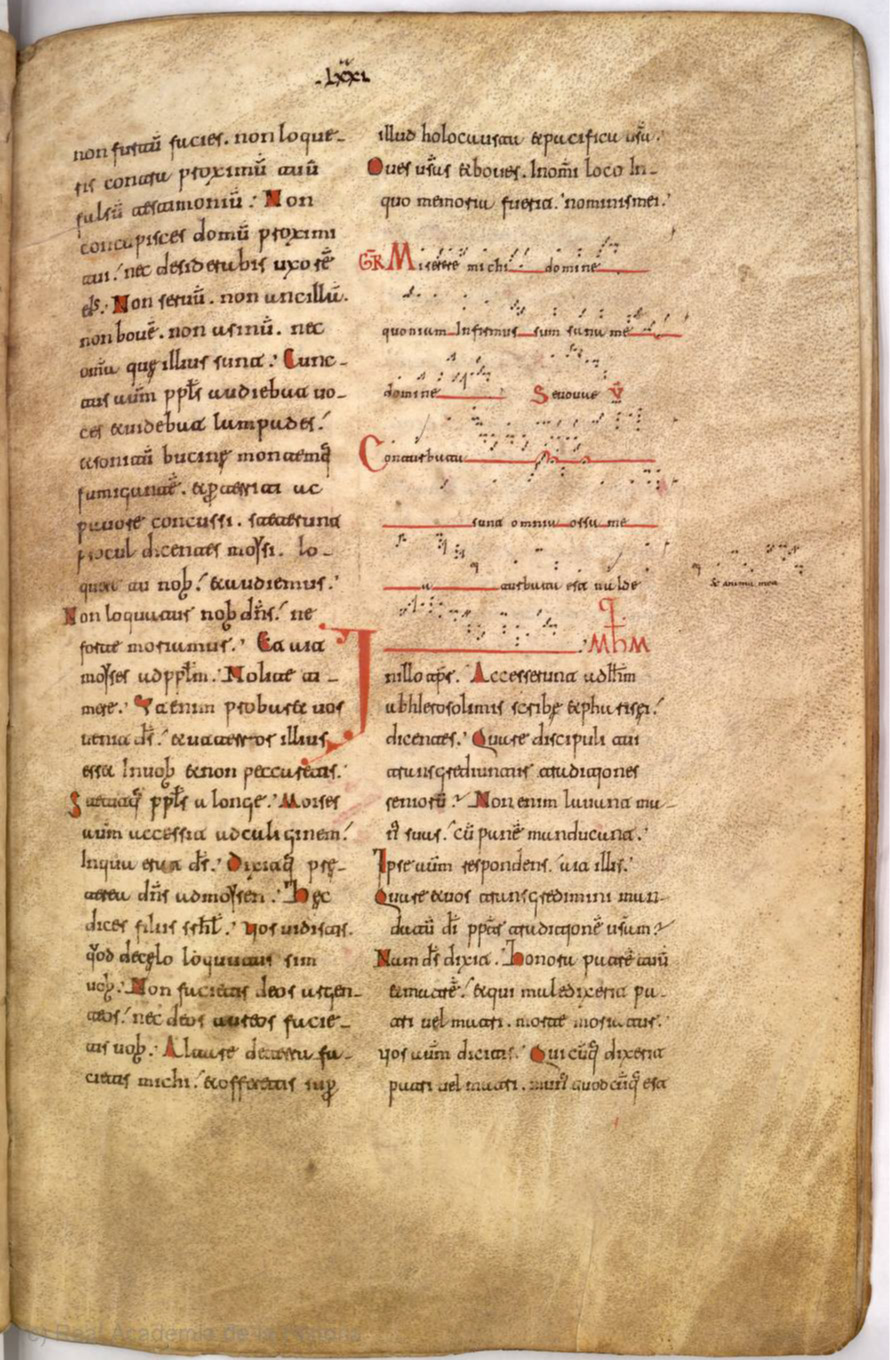 .lxxi.
non furtū facies. non loque-
ris contra proximū tuū
falsū testimoniū. Non
concupisces domū proximi
tui. nec desiderabis uxorē
eīs. Non seruū. non ancillā.
non bouē. non asinū. nec
omīa quę illius sunt. Cunc-
tus aūm ppl̄s audiebat uo-
ces & uidebat lampades.
& sonitū bucinę montemq̄
fumigantē. & p̱territi ac
pauore concussi. steterunt
procul dicentes moysi. lo-
quere tu noḇ. & audiemus.
Non loquatur noḇ dn̄s. ne
forte moriamur. Et ait
moyses ad ppl̄m. Nolite ti-
mere. Ut enim probaret uos
uenit d̄s. & ut terror illius
esset In uoḇ & non peccaretis.
Stetitq̄ ppl̄s a longe. Moises
aūm accessit ad caliginem
In qua erat d̄s. Dixitq̄ prę-
terea dn̄s ad moysen. Hęc
dices filiis srh̄l. Vos uidistis.
q̄od de cęlo loquutus sim
uoḇ. Non facietis deos argen-
teos. nec deos aureos facie-
tis uoḇ. Altare de terra fa-
cietis michi. & offeretis sup̱
illud holocausta & pacifica ūsa.
Oues ūsas & boues. In om̄i loco In
quo memoria fuerit nominis mei.
GR Miserere michi domine
quoniam Infirmus sum sana me
domine Senouue V
Conturbata
sunt omnia ossa me
a turbata est ualde
& anima mea
In illo tp̄r. Accesserunt ad ih̄m
ab hIerosolimis scribę & pharisęi.
dicentes. Quare discipuli tui
transgrediuntur traditiones
seniorū. Non enim lauant ma-
n̄ suas. cū panē manducant.
Ipse aūm respondens. ait illis.
Quare & uos transgredimini man-
datū d̄i pp̄t traditionē ūsam
Nam d̄s dixit. Honora patrē tuū
& matrē. & qui maledixerit pa-
tri uel matri. morte moriatur.
Vos aūm dicitis. Quicūq̄ dixerit
patri uel matri. mun̄ quodcūq̄ est